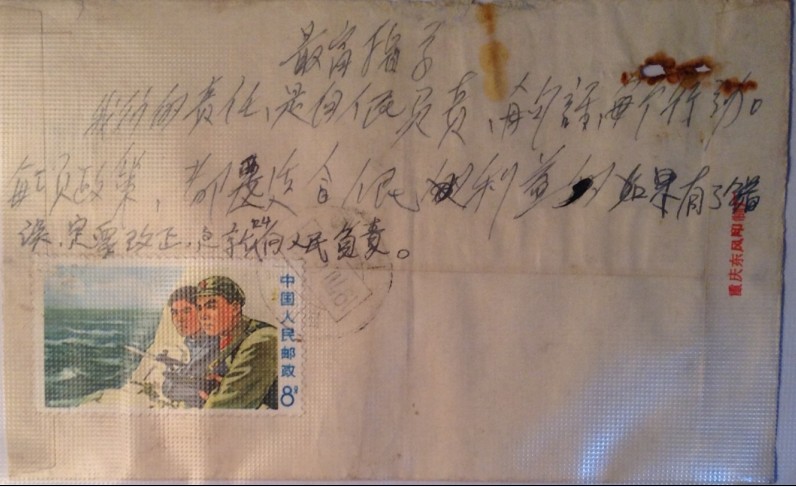 最高指示
我们的责任,是向人民负责,每句話,每个行动。
每项政策,都要适合人民的利益,如果有了錯
误,定要改正,这就叫向人民负责。
中国人民邮政
8
重庆东风印